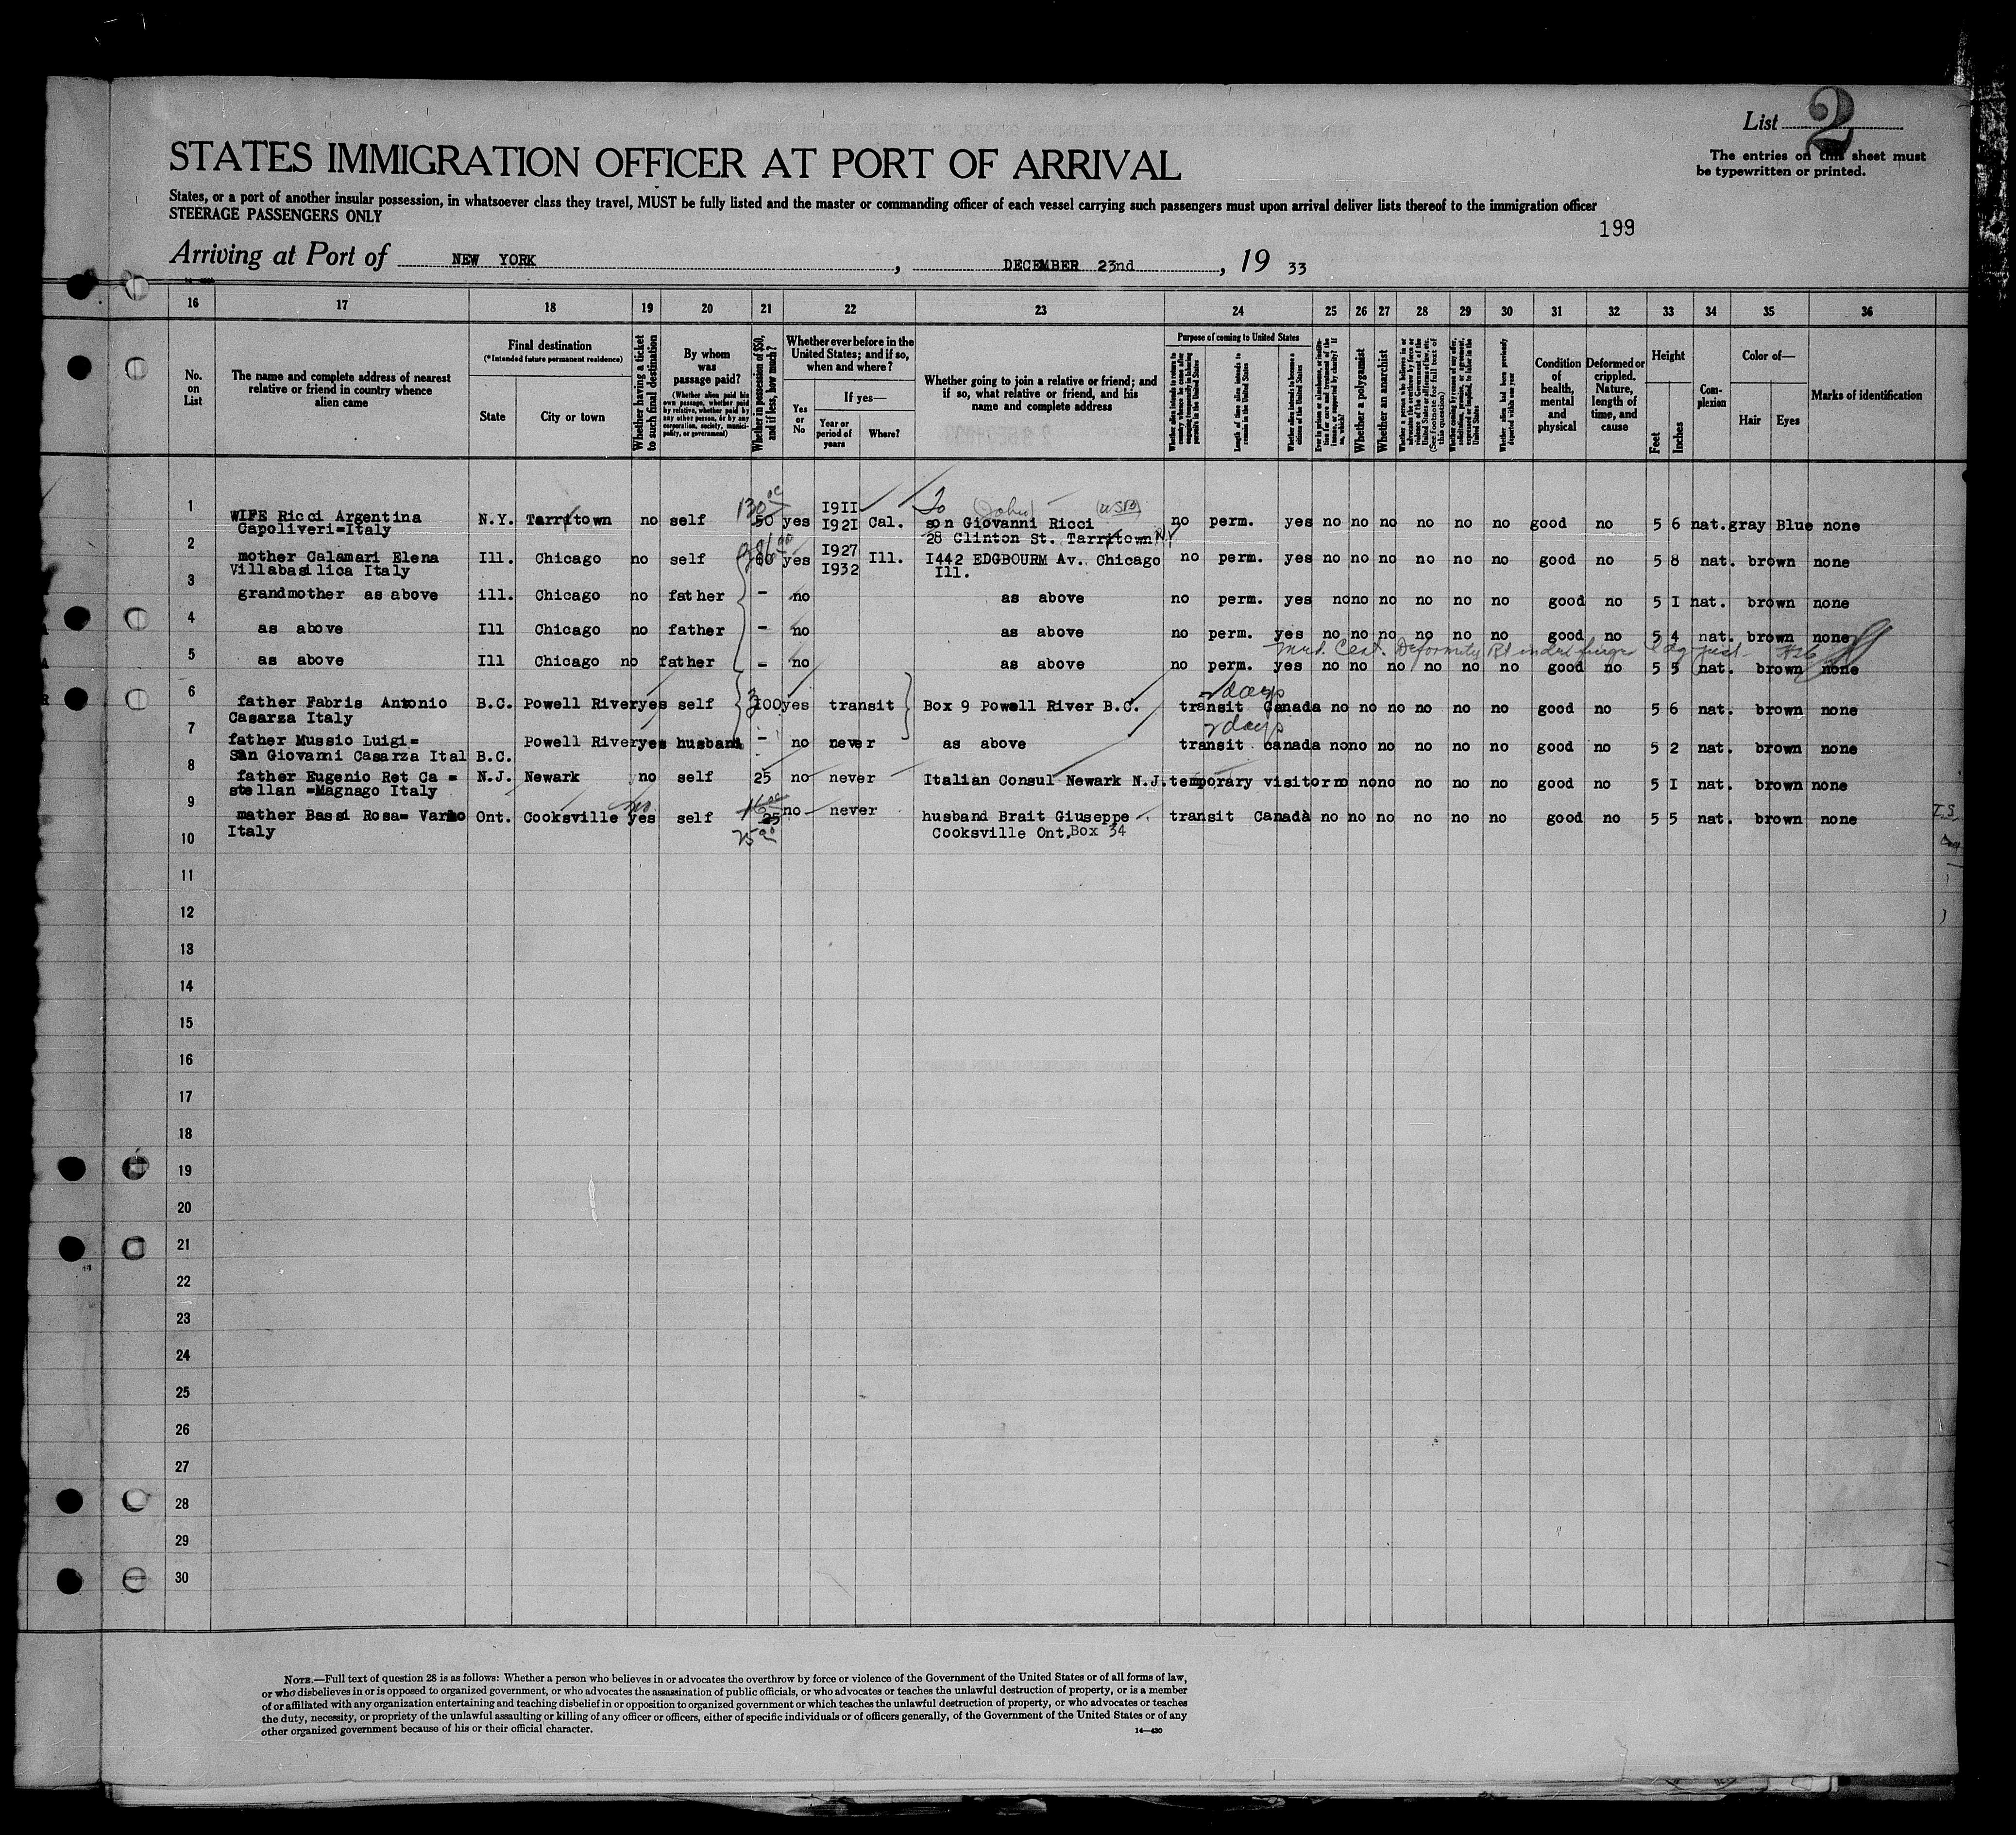 List 2
The entries on this sheet must
be typewritten or printed.
STATES IMMIGRATION OFFICER AT PORT OF ARRIVAL
States, or a port of another insular possession, in whatsoever class they travel, MUST be fully listed and the master or commanding officer of each vessel carrying such passengers must upon arrival deliver lists thereof to the immigration officer
STEERAGE PASSENGERS ONLY
199
Arriving at Port of NEW YORK, DECEMBER 23nd, 19 33
16 17 18 19 20 21 22 23 24 25 26 27 28 29 30 31 32 33 34 35 36
No. on List
The name and complete address of nearest relative or friend in country whence alien came
Final destination
(*Intended future permanent residence)
State
City or town
Whether having a ticket to such final destination
By whom was passage paid?
(Whether alien paid his own passage, whether paid by relative, whether paid by any other person, or by any corporation, society, municipality, or government)
Whether in possession of $50, and if less, how much?
Whether ever before in the United States; and if so, when and where?
Yes or No
If yes—
Year or period of years
Where?
Whether going to join a relative or friend; and if so, what relative or friend, and his name and complete address
Purpose of coming to United States
Length of time alien intends to remain in the United States
Whether alien intends to become a citizen of the United States
Whether a polygamist
Whether an anarchist
Condition of health, mental and physical
Deformed or crippled. Nature, length of time, and cause
Height
Feet
Inches
Complexion
Color of—
Hair
Eyes
Marks of identification
1 WIFE Ricci Argentina N.Y. Tarrytown no self 130 50 yes I9II I92I Cal. To son Giovanni Ricci (John) no perm. yes no no no no no no good no 5 6 nat. gray Blue none
Capoliveri=Italy 28 Clinton St. Tarrytown N.Y
2 mother Calamari Elena Ill. Chicago no self yes I927 I932 Ill. I442 EDGBOURM Av. Chicago no perm. yes no no no no no no good no 5 8 nat. brown none
Villabasilica Italy Ill.
3 grandmother as above ill. Chicago no father - no as above no perm. yes no no no no no no good no 5 I nat. brown none
4 as above Ill Chicago no father - no as above no perm. yes no no no no no no good no 5 4 nat. brown none
Med. Cert. Deformity Rt index finger
5 as above Ill Chicago no father - no as above no perm. yes no no no no no no good no 5 5 nat. brown none
2 days
6 father Fabris Antonio B.C. Powell River yes self 100 yes transit Box 9 Powell River B.C. transit Canada no no no no no no good no 5 6 nat. brown none
Casarza Italy
2 days
7 father Mussio Luigi= Powell River yes husband - no never as above transit canada no no no no no no good no 5 2 nat. brown none
San Giovanni Casarza Ital B.C.
8 father Eugenio Ret Ca = N.J. Newark no self 25 no never Italian Consul Newark N.J. temporary visitor no no no no no no good no 5 I nat. brown none
stellan =Magnago Italy
9 mather Bassi Rosa= Varmo Ont. Cooksville yes self 25 no never husband Brait Giuseppe transit Canada no no no no no no good no 5 5 nat. brown none
Italy Cooksville Ont. Box 34
10
11
12
13
14
15
16
17
18
19
20
21
22
23
24
25
26
27
28
29
30
NOTE.—Full text of question 28 is as follows: Whether a person who believes in or advocates the overthrow by force or violence of the Government of the United States or of all forms of law,
or who disbelieves in or is opposed to organized government, or who advocates the assassination of public officials, or who advocates or teaches the unlawful destruction of property, or is a member
of or affiliated with any organization entertaining and teaching disbelief in or opposition to organized government or which teaches the unlawful destruction of property, or who advocates or teaches
the duty, necessity, or propriety of the unlawful assaulting or killing of any officer or officers, either of specific individuals or of officers generally, of the Government of the United States or of any
other organized government because of his or their official character.
14—430